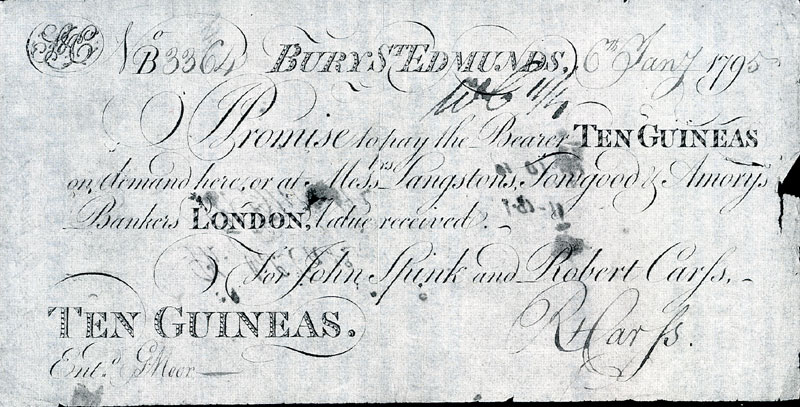 No B3364 BURY ST EDMUNDS, 6th Jany 1795
I Promise to pay the Bearer TEN GUINEAS
on demand here, or at Messrs Langstons, Towgood & Amory's
Bankers LONDON, Value received.
For John Spink and Robert Carſs,
TEN GUINEAS. Rt Carſs.
Entd